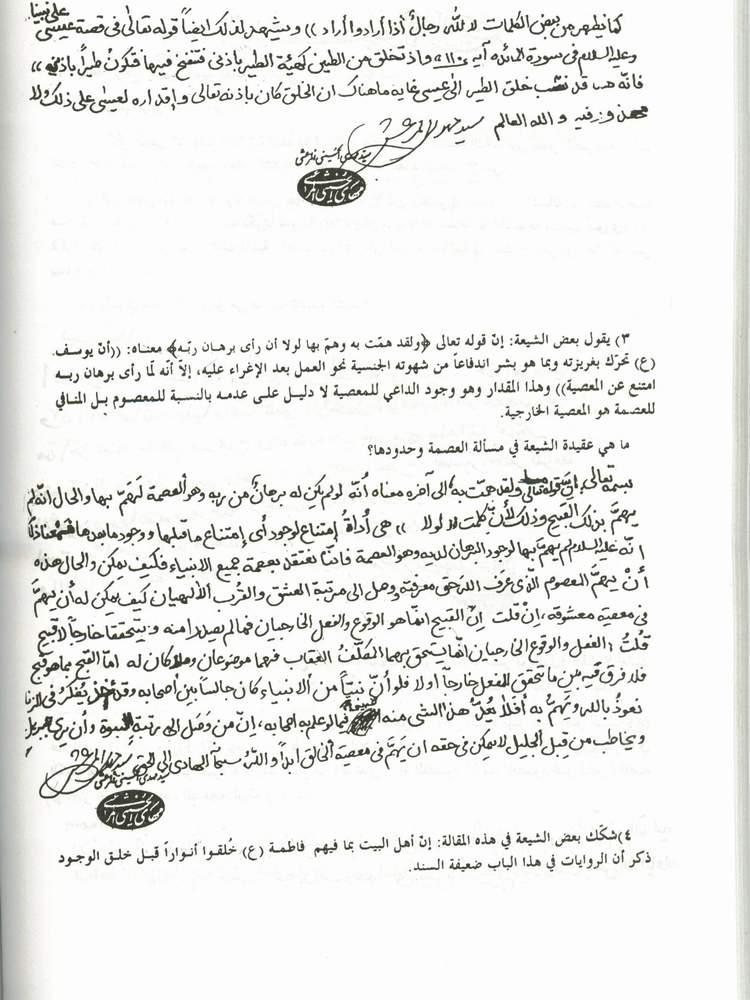 على نبينا
كما يظهر من بعض الكلمات لا لله رجالٌ أذا أرادوا أراد)) ويشهد لذلك ايضاً قوله تعالى في قصة عيسى
وعليه السلام في سورة المائده آيه ١١٠ ((واذ تخلق من الطين كهيئة الطير باذني فتنفخ فيها فتكون طيراً باذني))
فانّه هنا قد نسب خلق الطير الى عيسى غايه ما هناك ان الخلق كان باذنه تعالى و اقداره لعيسى على ذلك ولا
محذور فيه و الله العالم
٣) يقول بعض الشيعة: إنّ قوله تعالى ﴿ولقد همّت به وهمّ بها لولا أن رأى برهان ربّه﴾ معناه: ((أنّ يوسف.
(ع) تحرّك بغريزته وبما هو بشر اندفاعاً من شهوته الجنسية نحو العمل بعد الإغراء عليه، إلاّ أنّه لمّا رأى برهان ربـه
امتنع عن المعصية)) وهذا المقدار وهو وجود الداعي للمعصية لا دليـل علـى عدمـه بالنسـبة للمعصـوم بـل المنـافي
للعصمة هو المعصية الخارجية.
ما هي عقيدة الشيعة في مسألة العصمة وحدودها؟
بسمه تعالى إنّ قوله تعالى ولقد همّت به الى آخره معناه أنّه لو لم يكن له برهانٌ من ربه وهو العصمة لَهَمّ بها والحال انّه لم
يهمّ بذلك القبيح وذلك لأنّ كلمت لولا)) هى أداةُ إمتناع لوجود أى إمتناع ما قبلها و وجود ما بعدها فمعناه
انّه عليه السلام لم يهمّ بها لوجود البرهان لديه وهو العصمة فانّنا نعتقد بعصمة جميع الانبياء فكيف يمكن والحال هذه
أنْ يهمّ المعصوم الّذى عرف الله حق معرفته و وصل الى مرتبة العشق والقُرب الألهيان كيف يمكن له أن يهمّ
فى معصية معشوقه، إنْ قلت إنّ القبيح انّما هو الوقوع والفعل الخارجيان فما لم يصدر منه و يتحقق خارجاً لا قبيح
قلتُ الفعل والوقوع الخارجيان انّما يستحق بهما المكلّفُ العقاب فهما موضوعان وملاكان له امّا القبح بما هو قبح
فلا فرق فيه بين ما تحقق الفعل خارجاً أو لا فلو أنّ نبيّاً من الانبياء كان جالساً بين أصحابه وقد أخذ يفكّر فى الزنا
نعوذ بالله و يهمّ به أفلا يعدّ هذا الشى منه فما لو علم به اصحابه، إنّ من وصل الى رتبة النبوة وأن يرى جبرئيل
ويخاطب من قبل الجليل لا يمكن فى حقه ان يهمّ فى معصية الخالق ابداً و الله سبحانه الهادى الى الحق
٤)شكّك بعض الشيعة في هذه المقالة: إنّ أهل البيت بما فيهم فاطمـة (ع) خُلقـوا أنـواراً قبـل خلـق الوجـود
ذكر أن الروايات في هذا الباب ضعيفة السند.